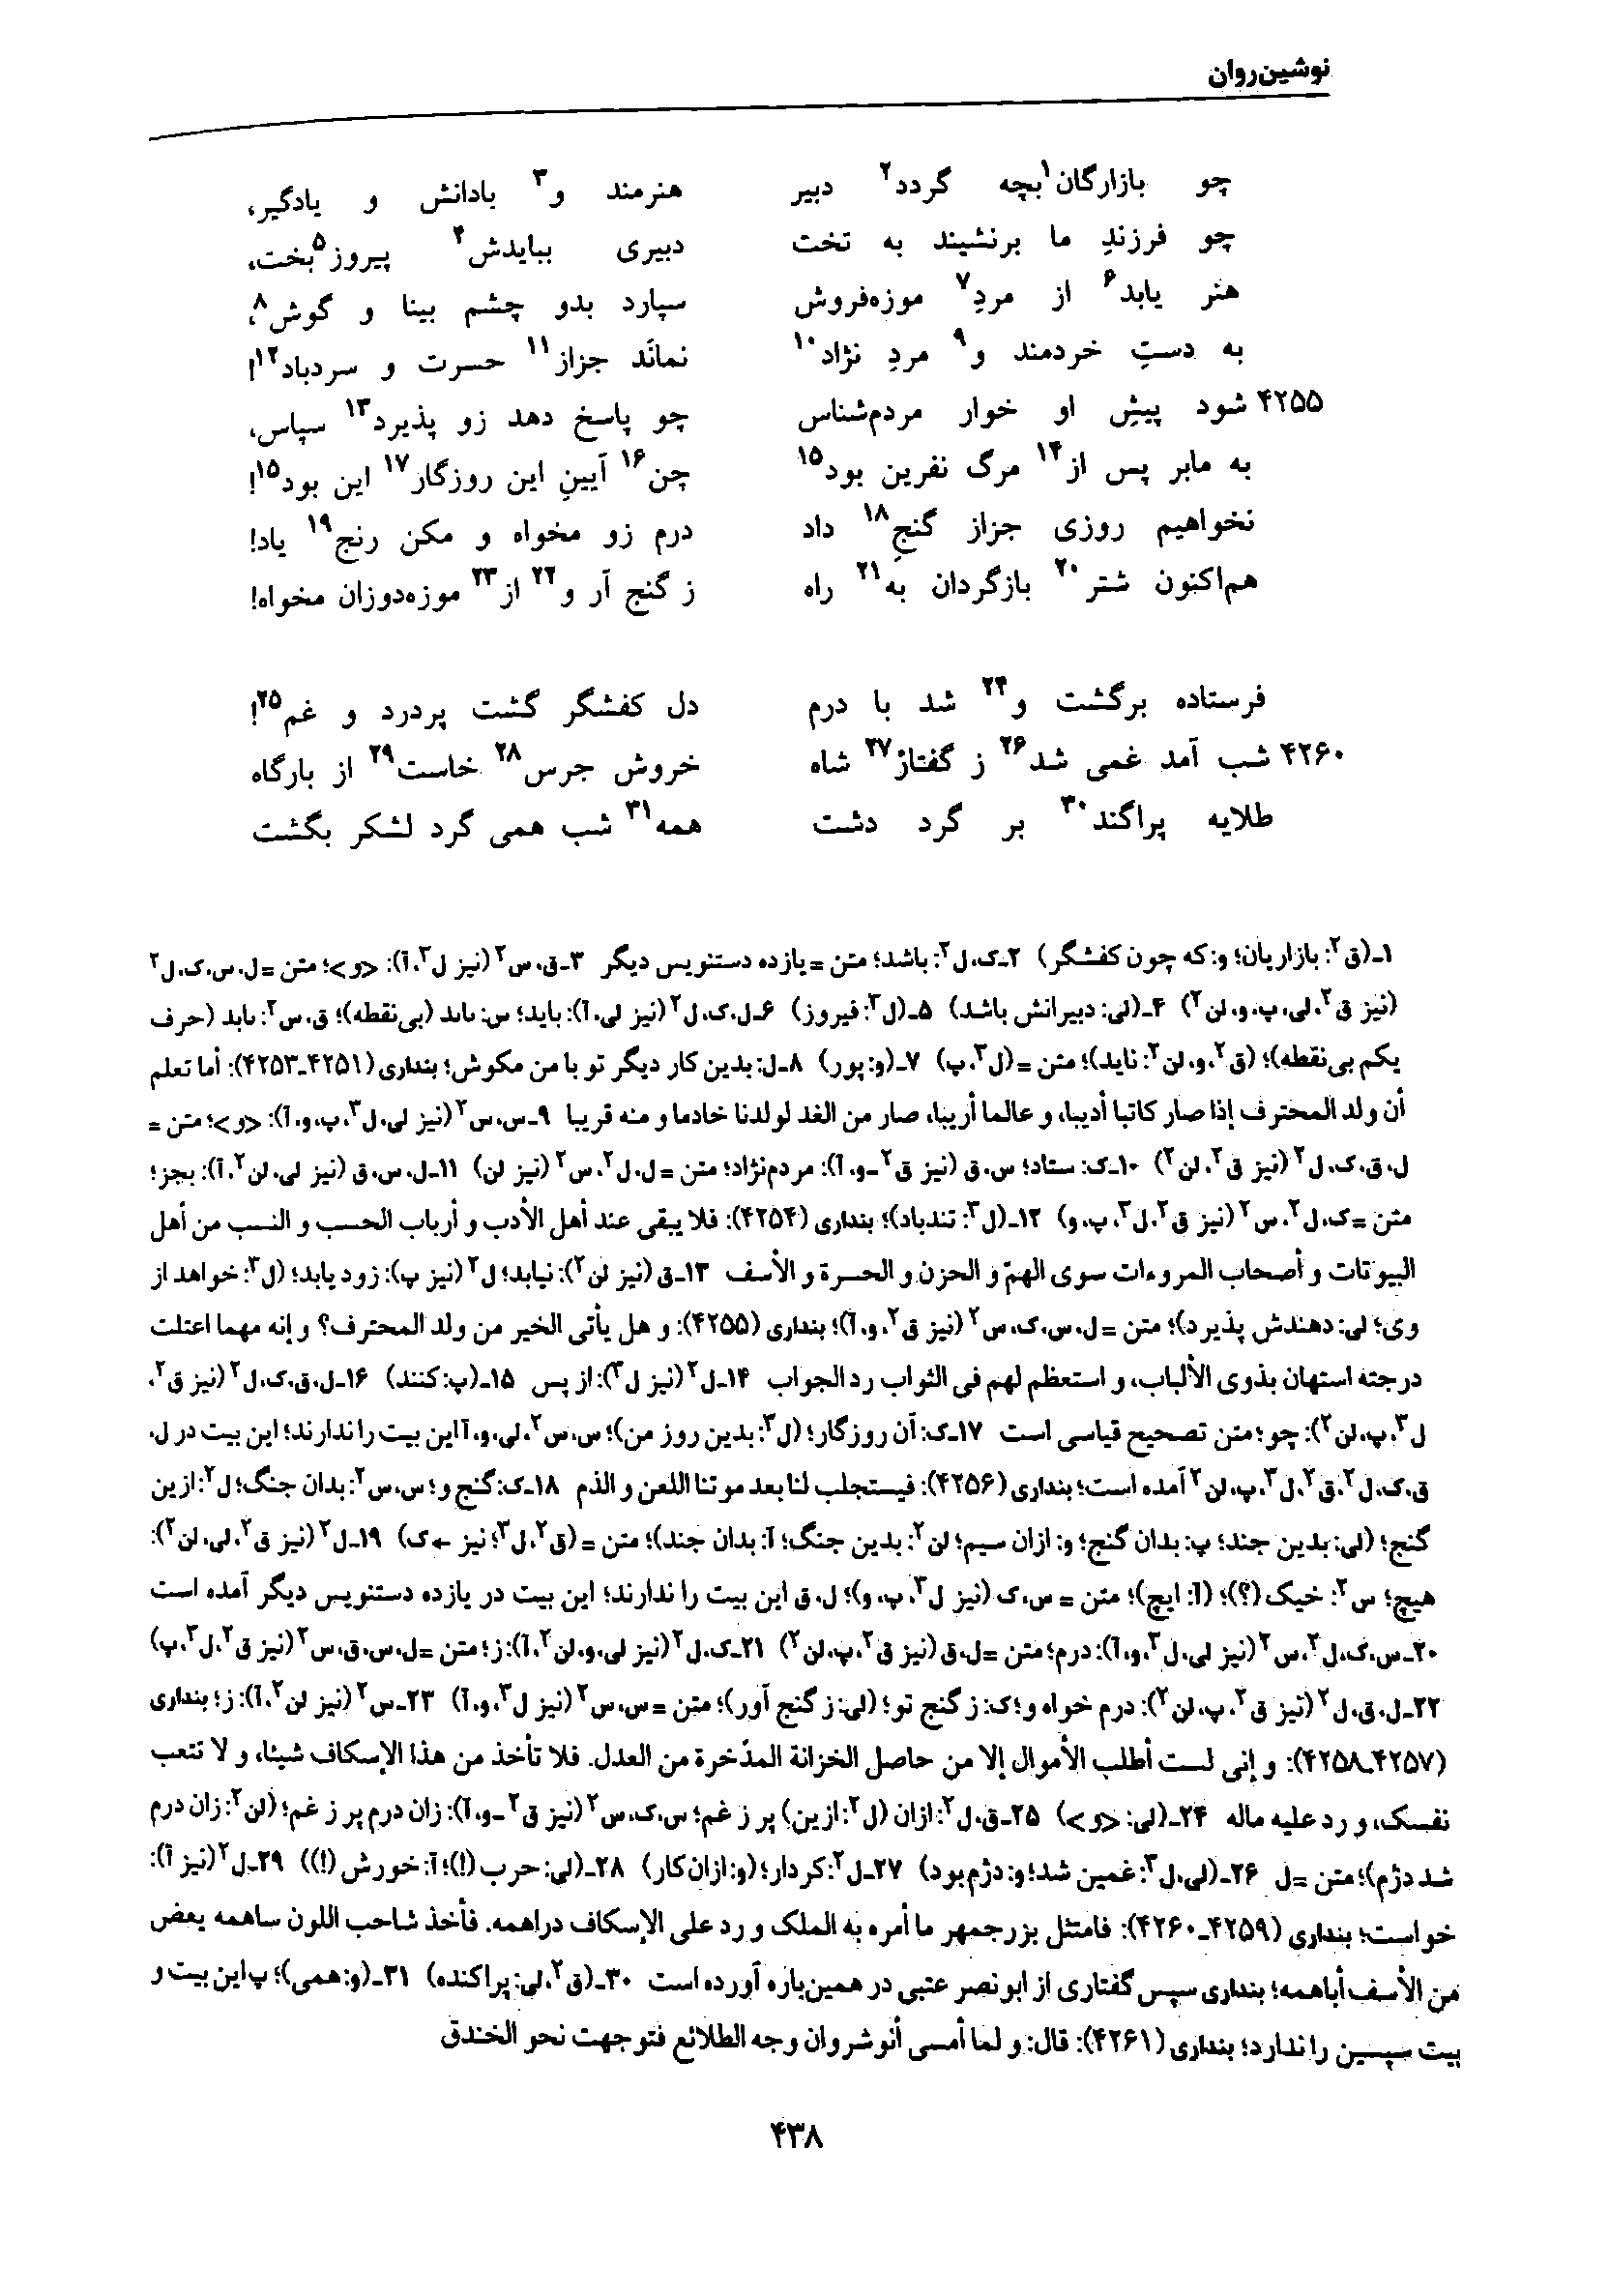 نوشین‌روان
چو بازارگان¹بچه گردد² دبیر هنرمند و³ بادانش و یادگیر،
چو فرزندِ ما برنشیند به تخت دبیری ببایدش⁴ پیروز⁵بخت،
هنر یابد⁶ از مردِ⁷ موزه‌فروش سپارد بدو چشم بینا و گوش⁸،
به دستِ خردمند و⁹ مردِ نژاد¹⁰ نمانَد جزاز¹¹ حسرت و سردباد¹²!
۴۲۵۵ شود پیشِ او خوار مردم‌شناس چو پاسخ دهد زو پذیرد¹³ سپاس،
به مابر پس از¹⁴ مرگ نفرین بود¹⁵ چن¹⁶ آیینِ این روزگار¹⁷ این بود¹⁵!
نخواهیم روزی جزاز گنجِ¹⁸ داد درم زو مخواه و مکن رنج¹⁹ یاد!
هم‌اکنون شتر²⁰ بازگردان به²¹ راه ز گنج آر و²² از²³ موزه‌دوزان مخواه!
فرستاده برگشت و²⁴ شد با درم دل کفشگر گشت پردرد و غم²⁵!
۴۲۶۰ شب آمد غمی شد²⁶ ز گفتارِ²⁷ شاه خروش جرس²⁸ خاست²⁹ از بارگاه
طلایه پراگند³⁰ بر گرد دشت همه³¹ شب همی گرد لشکر بگشت
۱ـ(ق²: بازاریان؛ و: که چون کفشگر) ۲ـ‌ک، ل²: باشد؛ متن = یازده دستنویس دیگر ۳ـ‌ق، س² (نیز ل³، آ): <و>؛ متن = ل، س، ک، ل²
(نیز ق²، لی، پ، و، لن²) ۴ـ(لی: دبیرانش باشد) ۵ـ(ل³: فیروز) ۶ـ‌ل، ک، ل² (نیز لی، آ): باید؛ س: ىاىد (بی‌نقطه)؛ ق، س²: ىابد (حرف
یکم بی‌نقطه)؛ (ق²، و، لن²: ناید)؛ متن = (ل³، پ) ۷ـ(و: پور) ۸ـ‌ل: بدین کار دیگر تو با من مکوش؛ بنداری (۴۲۵۱ـ۴۲۵۳): أما تعلم
أن ولد المحترف إذا صار کاتبا أدیبا، و عالما أریبا، صار من الغد لولدنا خادما و منه قریبا ۹ـ‌س، س² (نیز لی، ل³، پ، و، آ): <و>؛ متن =
ل، ق، ک، ل² (نیز ق²، لن²) ۱۰ـ‌ک: ستاد؛ س، ق (نیز ق² ـ و، آ): مردم‌نژاد؛ متن = ل، ل²، س² (نیز لن) ۱۱ـ‌ل، س، ق (نیز لی، لن²، آ): بجز؛
متن = ک، ل²، س² (نیز ق²، ل³، پ، و) ۱۲ـ(ل³: تندباد)؛ بنداری (۴۲۵۴): فلا یبقی عند أهل الأدب و أرباب الحسب و النسب من أهل
البیوتات و أصحاب المروءات سوی الهمّ و الحزن و الحسرة و الأسف ۱۳ـ‌ق (نیز لن²): نیابد؛ ل² (نیز پ): زود یابد؛ (ل³: خواهد از
وی؛ لی: دهندش پذیرد)؛ متن = ل، س، ک، س² (نیز ق²، و، آ)؛ بنداری (۴۲۵۵): و هل یأتی الخیر من ولد المحترف؟ و إنه مهما اعتلت
درجته استهان بذوی الألباب، و استعظم لهم فی الثواب رد الجواب ۱۴ـ‌ل² (نیز ل³): از پس ۱۵ـ(پ: کنند) ۱۶ـ‌ل، ق، ک، ل² (نیز ق²،
ل³، پ، لن²): چو؛ متن تصحیح قیاسی است ۱۷ـ‌ک: آن روزگار؛ (ل³: بدین روز من)؛ س، س²، لی، و، آ این بیت را ندارند؛ این بیت در ل،
ق، ک، ل²، ق²، ل³، پ، لن² آمده است؛ بنداری (۴۲۵۶): فیستجلب لنا بعد موتنا اللعن و الذم ۱۸ـ‌ک: گنج و؛ س، س²: بدان جنگ؛ ل²: ازین
گنج؛ (لی: بدین جند؛ پ: بدان گنج؛ و: ازان سیم؛ لن²: بدین جنگ؛ آ: بدان جند)؛ متن = (ق²، ل³؛ نیز ← ک) ۱۹ـ‌ل² (نیز ق²، لی، لن²):
هیچ؛ س²: خیک (؟)؛ (آ: ایچ)؛ متن = س، ک (نیز ل³، پ، و)؛ ل، ق این بیت را ندارند؛ این بیت در یازده دستنویس دیگر آمده است
۲۰ـ‌س، ک، ل²، س² (نیز لی، ل³، و، آ): درم؛ متن = ل، ق (نیز ق²، پ، لن²) ۲۱ـ‌ک، ل² (نیز لی، و، لن²، آ): ز؛ متن = ل، س، ق، س² (نیز ق²، ل³، پ)
۲۲ـ‌ل، ق، ل² (نیز ق²، پ، لن²): درم خواه و؛ ک: ز گنج تو؛ (لی: ز گنج آور)؛ متن = س، س² (نیز ل³، و، آ) ۲۳ـ‌س² (نیز لن²، آ): ز؛ بنداری
(۴۲۵۷ـ۴۲۵۸): و إنی لست أطلب الأموال إلا من حاصل الخزانة المدّخرة من العدل. فلا تأخذ من هذا الإسکاف شیئا، و لا تتعب
نفسک، و رد علیه ماله ۲۴ـ(لی: <و>) ۲۵ـ‌ق، ل²: ازان (ل²: ازین) پر ز غم؛ س، ک، س² (نیز ق² ـ و، آ): زان درم پر ز غم؛ (لن²: زان درم
شد دژم)؛ متن = ل ۲۶ـ(لی، ل³: غمین شد؛ و: دژم بود) ۲۷ـ‌ل²: کردار؛ (و: ازان کار) ۲۸ـ(لی: حرب (!)؛ آ: خورش (!)) ۲۹ـ‌ل² (نیز آ):
خواست؛ بنداری (۴۲۵۹ـ۴۲۶۰): فامتثل بزرجمهر ما أمره به الملک و رد علی الإسکاف دراهمه. فأخذ شاحب اللون ساهمه یعض
من الأسف أباهمه؛ بنداری سپس گفتاری از ابونصر عتبی در همین‌باره آورده است ۳۰ـ(ق²، لی: پراکنده) ۳۱ـ(و: همی)؛ پ این بیت و
بیت سپسین را ندارد؛ بنداری (۴۲۶۱): قال: و لما أمسی أنوشروان وجه الطلائع فتوجهت نحو الخندق
۴۳۸